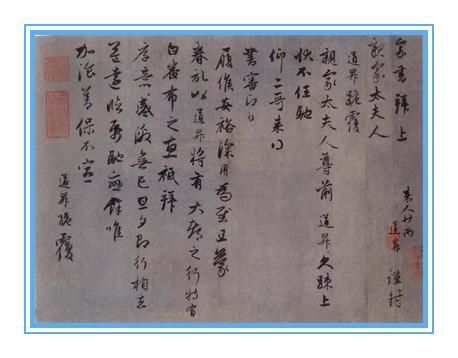 家書拜上
親家太夫人
道昇謹封
道昇跪覆
親家太夫人尊前 道昇久疎上
狀不任馳
仰二哥来得
書審即日
履候安裕深用為慰且蒙
眷記以道昇將有大都之行特有
白番布之惠祗拜
厚意感激無已旦夕即行相去
益遠臨紙馳戀餘唯
加湌善保不宣
道昇跪覆